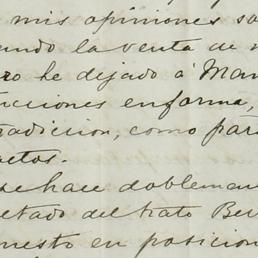 mis opiniones so
ando la venta de
ro he dejado á Man
ucciones en forma,
radicion, como par
actos.
se hace doblemen
etado del trato Ber
uesto en posicion